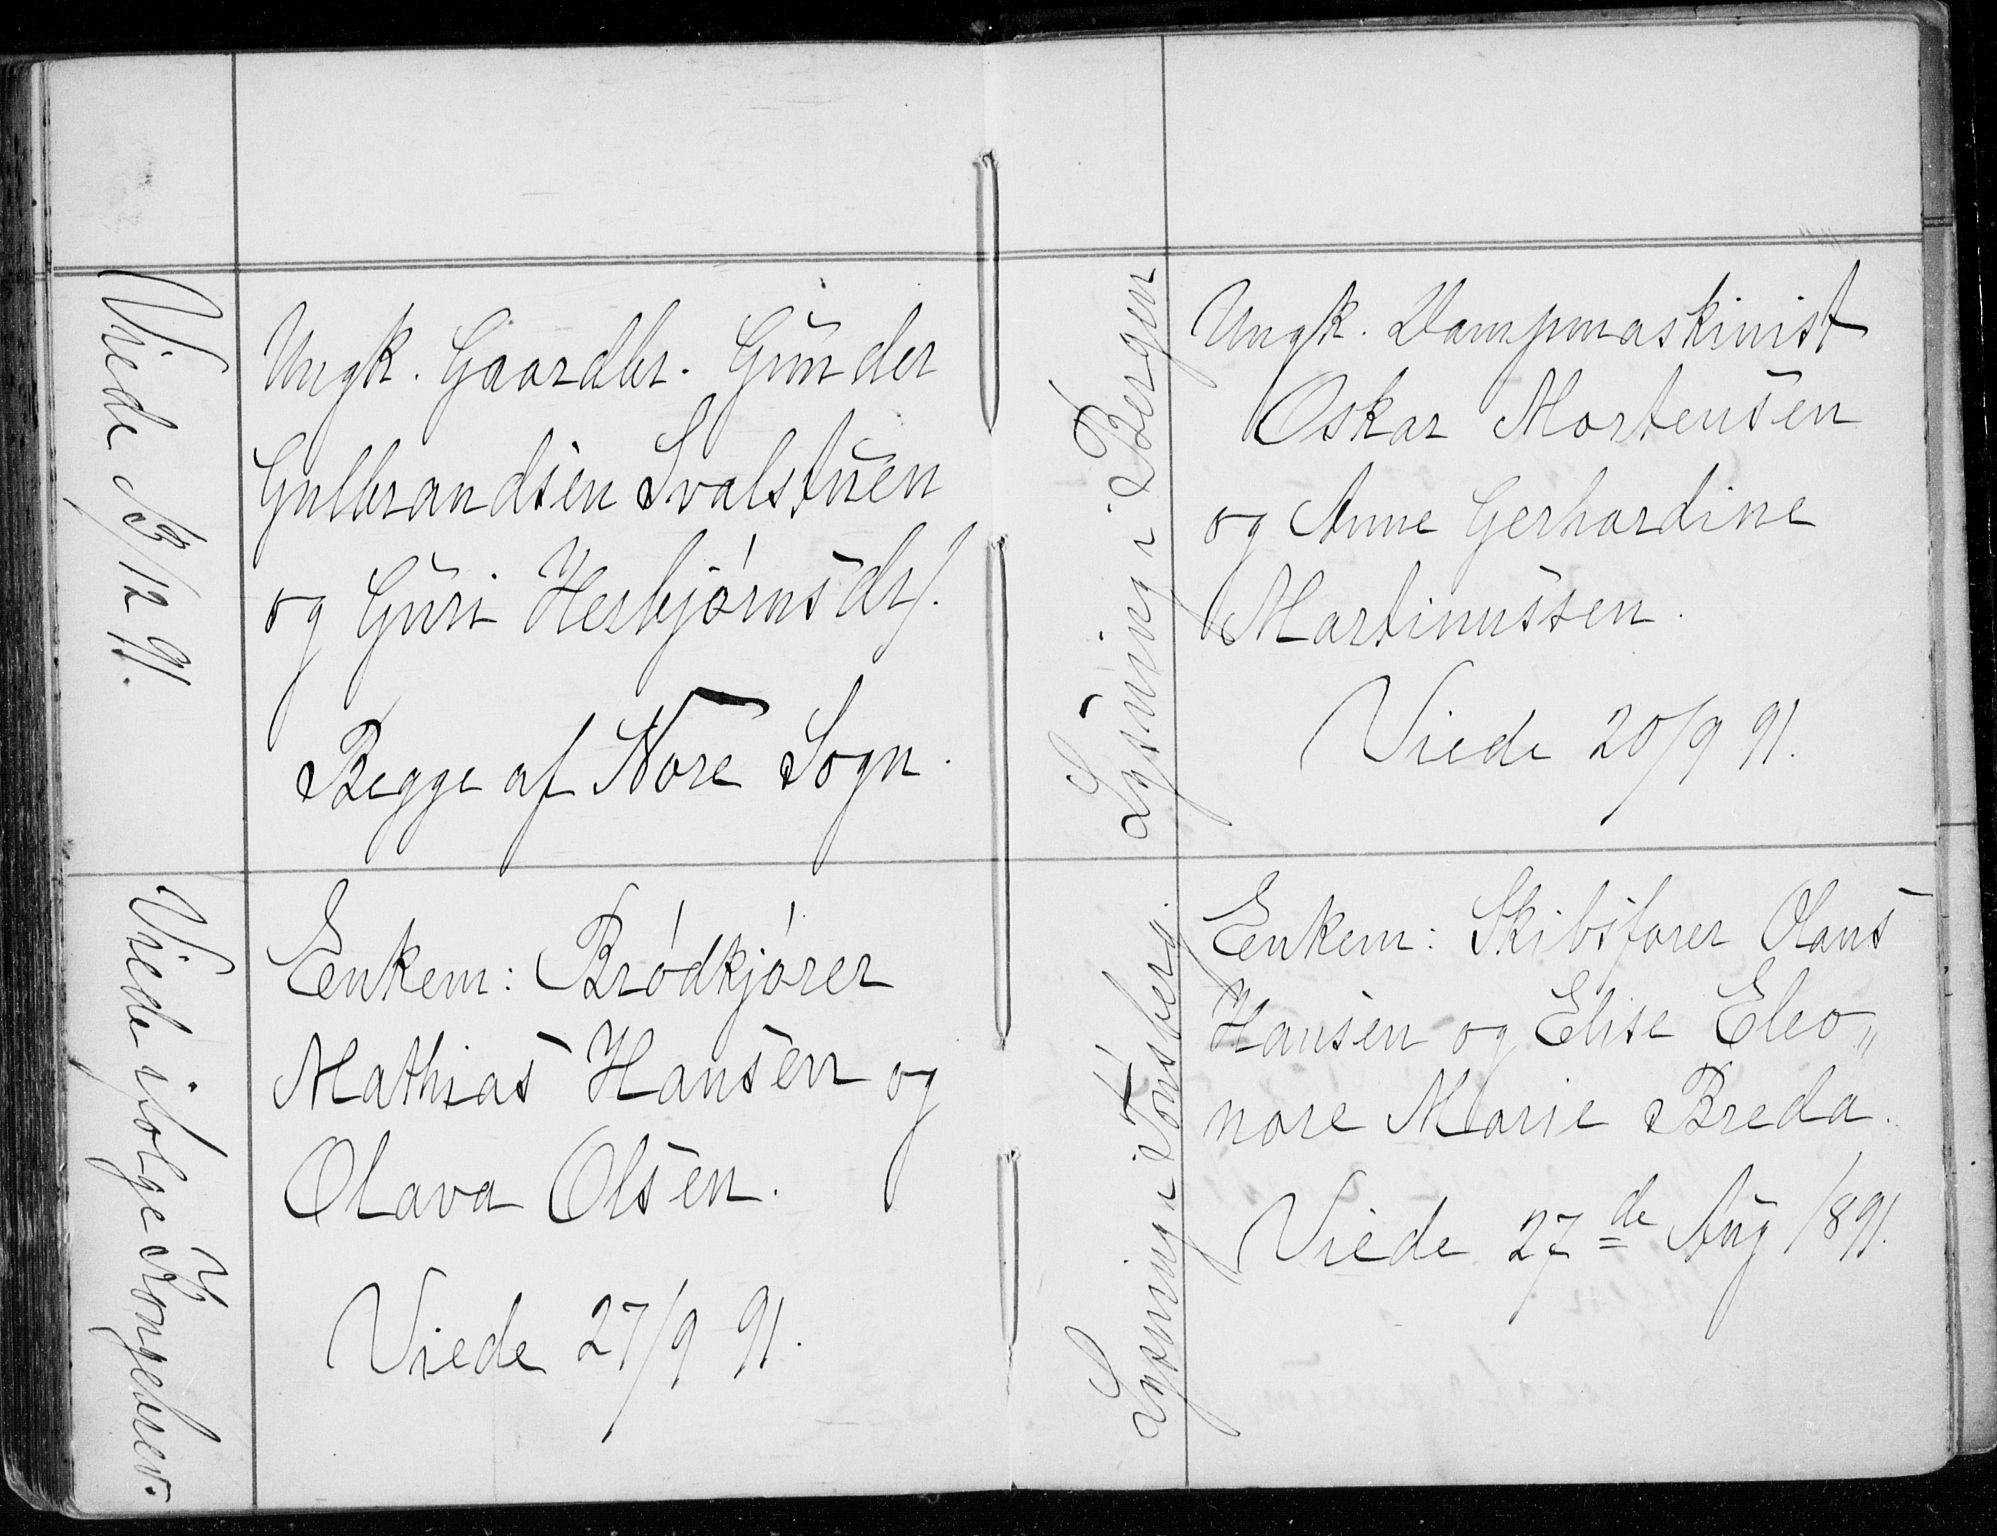 Viede 13/12 91.
Ungk. Gaardbr. Gunder
Gulbrandsen Svalstuen
og Guri Herbjørnsdt.
Begge af Nore Sogn.
Viede ifølge Kongebrev.
Enkem: Brødkjører
Mathias Hansen og
Olava Olsen.
Viede 27/9 91.
Lysning i Bergen
Ungk. Dampmaskinist
Oskar Mortensen
og Anne Gerhardine
Martinussen.
Viede 20/9 91.
Lysning i Tønsberg.
Enkem: Skibsfører Olaus
Hansen og Elise Eleo„
nore Marie Breda.
Viede 27de Aug 1891.